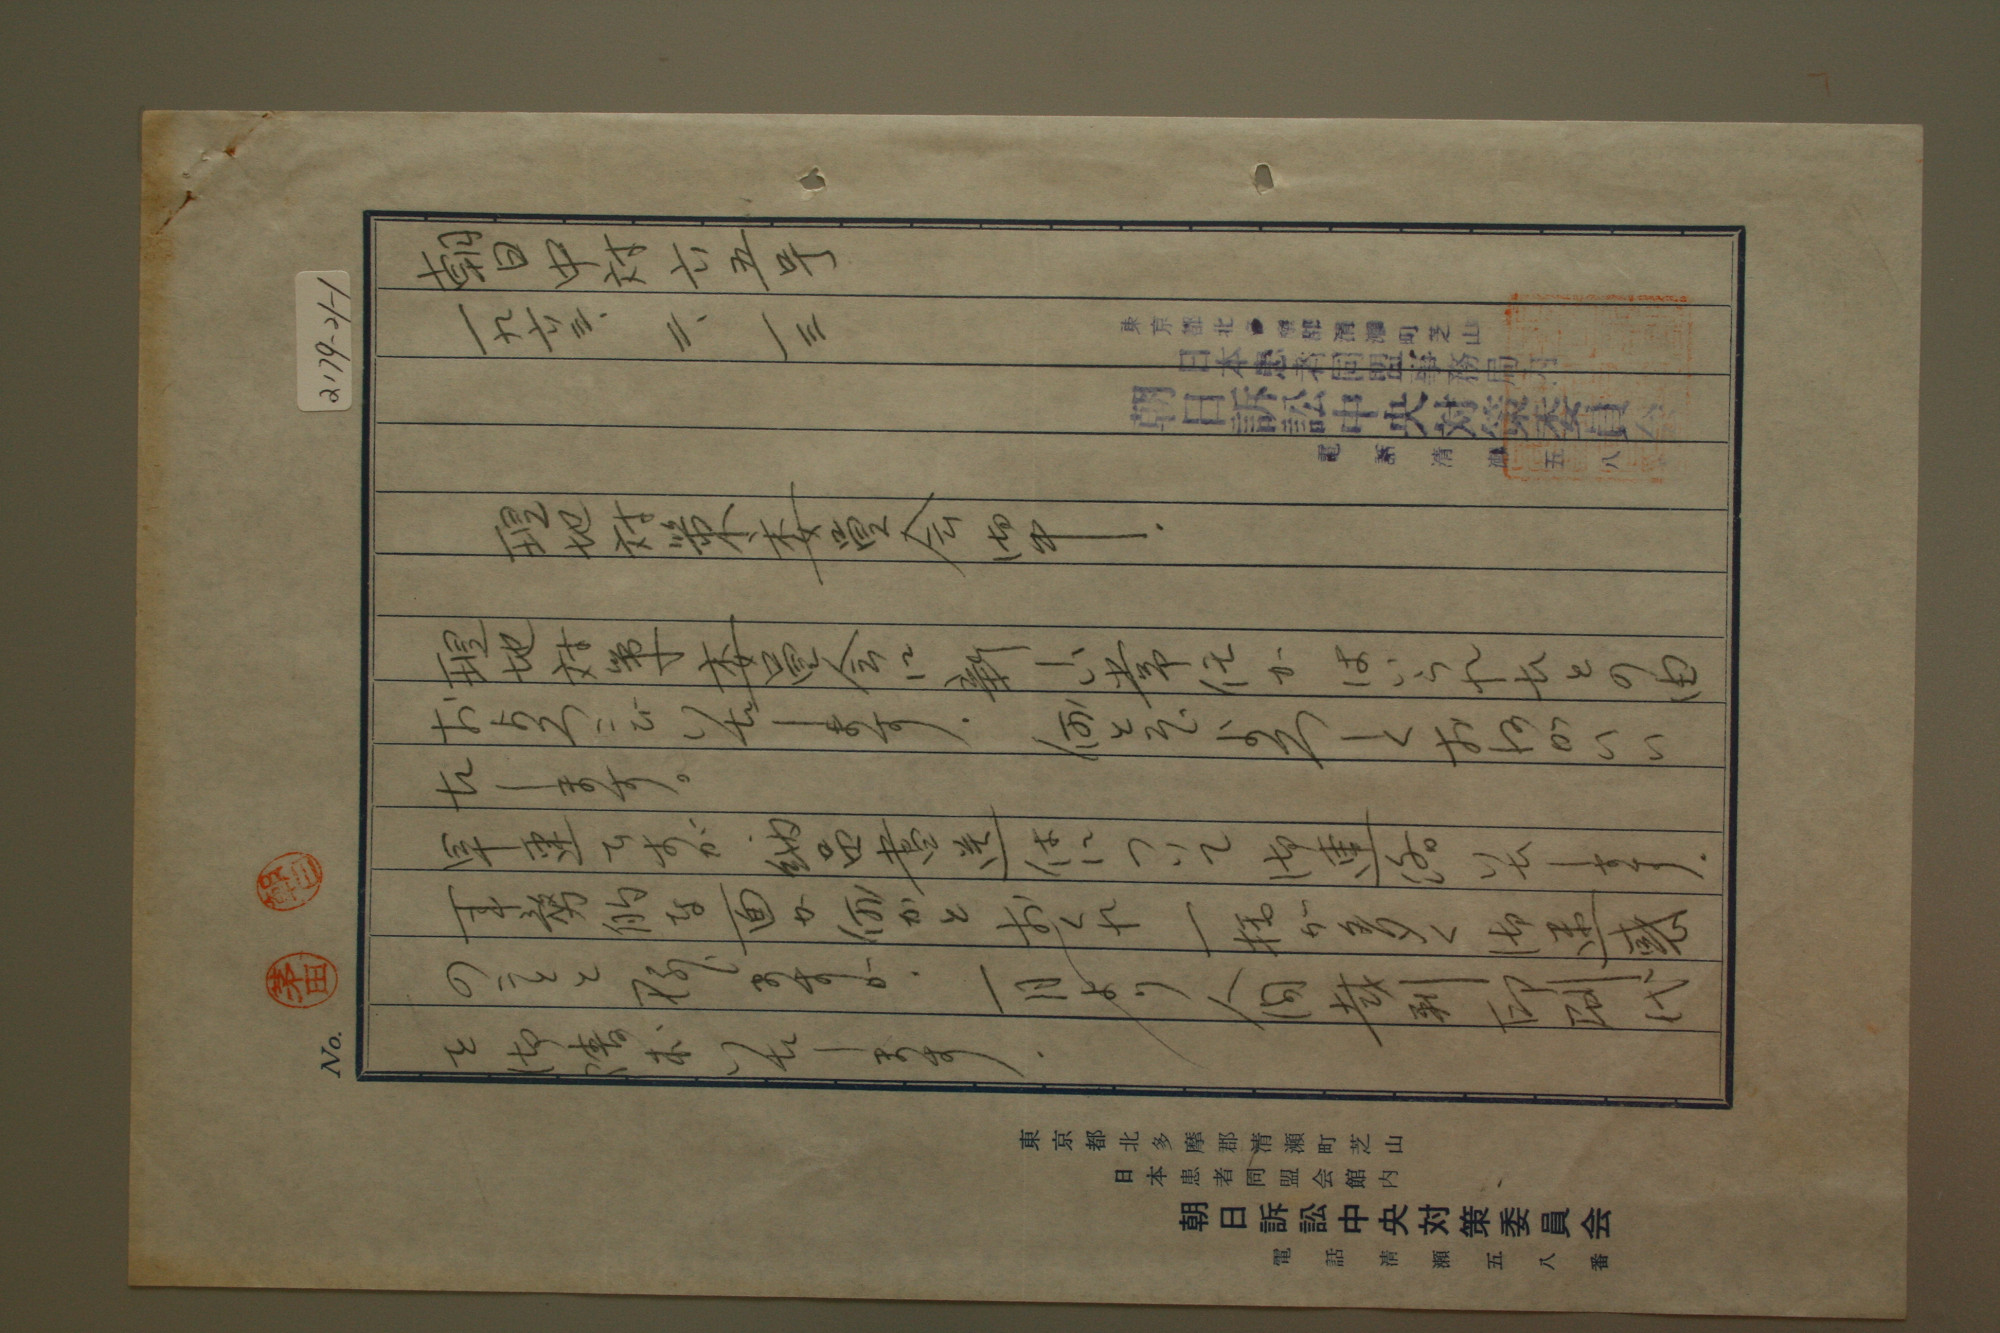 2179-21-1
朝日中対六五号
一九六三、二、一三
東京都北多摩郡清瀬町芝山
日本患者同盟事務局内
朝日訴訟中央対策委員会
電話清瀬五八
現地対策委員会御中.
現地対策委員会に新しい常任がはいられたとの由
およろこび致します.何とぞよろしくおねがいい
たします。
早速ですが物品書送付について御連絡いたします.
事務的な面が何かとおくれ一様が多く御迷惑
のことと存じますが.一月より人間裁判印刷代
と御清求いたします.
茅田
No.
東京都北多摩郡清瀬町芝山
日本患者同盟会館内
朝日訴訟中央対策委員会
電話清瀬五八番